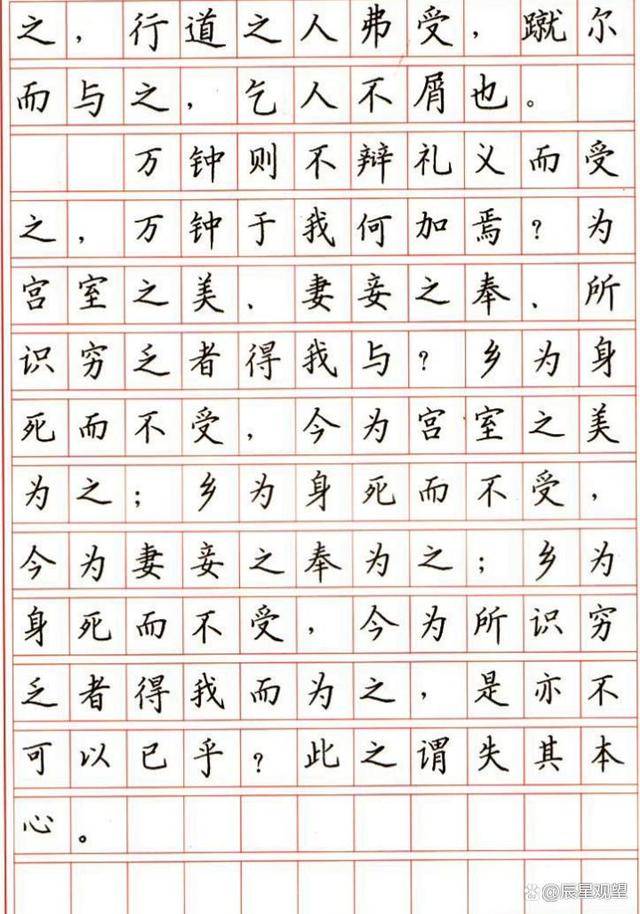 之，行道之人弗受，蹴尔
而与之，乞人不屑也。
万钟则不辩礼义而受
之，万钟于我何加焉？为
宫室之美、妻妾之奉、所
识穷乏者得我与？乡为身
死而不受，今为宫室之美
为之；乡为身死而不受，
今为妻妾之奉为之；乡为
身死而不受，今为所识穷
乏者得我而为之，是亦不
可以已乎？此之谓失其本
心。
@辰星观望